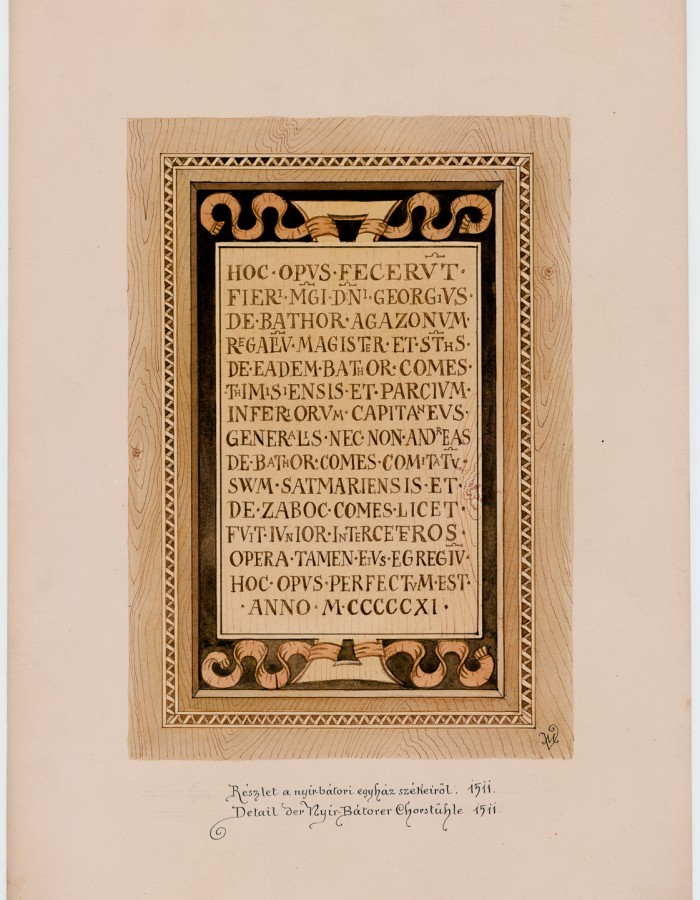 HOC·OPVS·FECERVT·
FIERI·MGI·DNI·GEORGIVS·
DE·BATHOR·AGAZONVM·
REGALEV·MAGISTER·ET·STHS·
DE·EADEM·BATHOR·COMES·
THIMISIENSIS·ET·PARCIVM·
INFERIORVM·CAPITANEVS·
GENERALIS·NEC·NON·ANDREAS
DE·BATHOR·COMES·COMITATV·
SWM·SATMARIENSIS·ET·
DE·ZABOC·COMES·LICET·
FVIT·IVNIOR·INTERCETEROS·
OPERA·TAMEN·EIVS·EGREGIV·
HOC·OPVS·PERFECTVM·EST·
·ANNO·M·CCCCCXI·
Részlet a nyírbátori egyház székeiről. 1511.
Detail der Nyír-Bátorer Chorstühle 1511